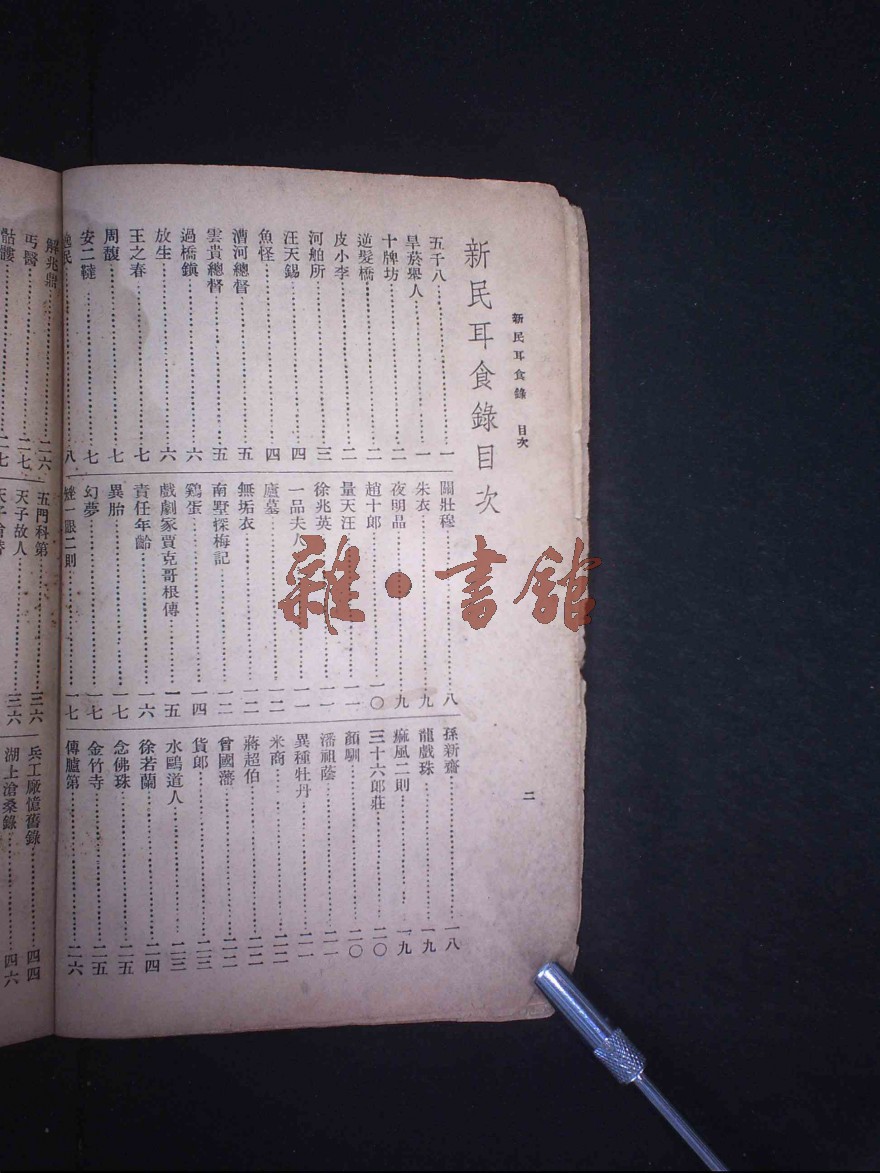 新民耳食錄 目次
二
新民耳食錄目次
五千八……一
旱菸舉人……一
十牌坊……二
逆髮橋……二
皮小李……二
河舶所……三
汪天錫……四
魚怪……四
漕河總督……五
雲貴總督……五
過橋鎮……六
放生……六
王之春……七
周馥……七
安二韃……七
逸民……八
關壯穆……八
朱衣……九
夜明晶……九
趙十郎……一〇
量天汪……一一
徐兆英……一一
一品夫人……一一
廬墓……一二
無垢衣……一二
南墅探梅記……一二
鷄蛋……一四
戲劇家賈克哥根傳……一五
責任年齡……一六
異胎……一七
幻夢……一七
一眼二則……一七
孫新齋……一八
龍戲珠……一九
痲風二則……一九
三十六郎莊……二〇
顏馴……二〇
潘祖蔭……二一
異種牡丹……二一
米商……二二
蔣超伯……二二
曾國藩……二二
貨郎……二三
水鷗道人……二三
徐若蘭……二四
念佛珠……二五
金竹寺……二五
傳臚第……二六
解兆鼎……二六
丐醫……二七
骷髏……二七
五門科第……三六
天子故人……三六
兵工廠憶舊錄……四四
湖上滄桑錄……四六
雜·書館